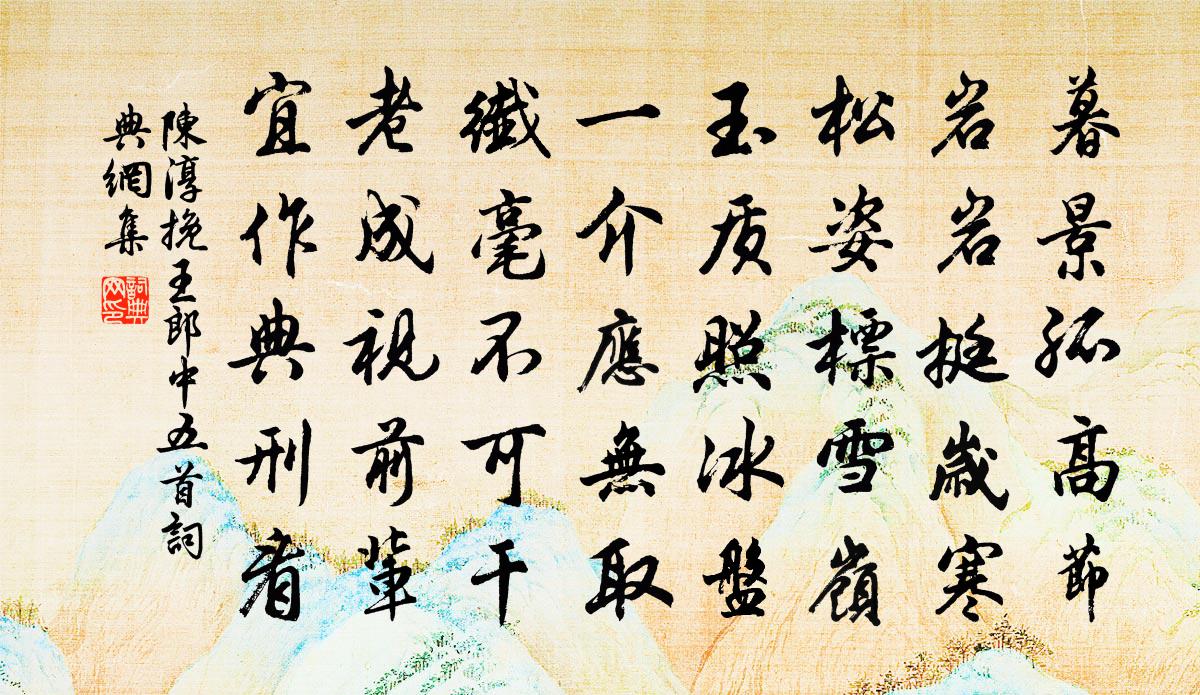 暮景孤高節
岩岩挺歲寒
松姿標雪嶺
玉质照冰盤
一介應無取
纖毫不可干
老成視前輩
宜作典刑看
陳淳挽王郎中五首詞
典網集
詞典
网印